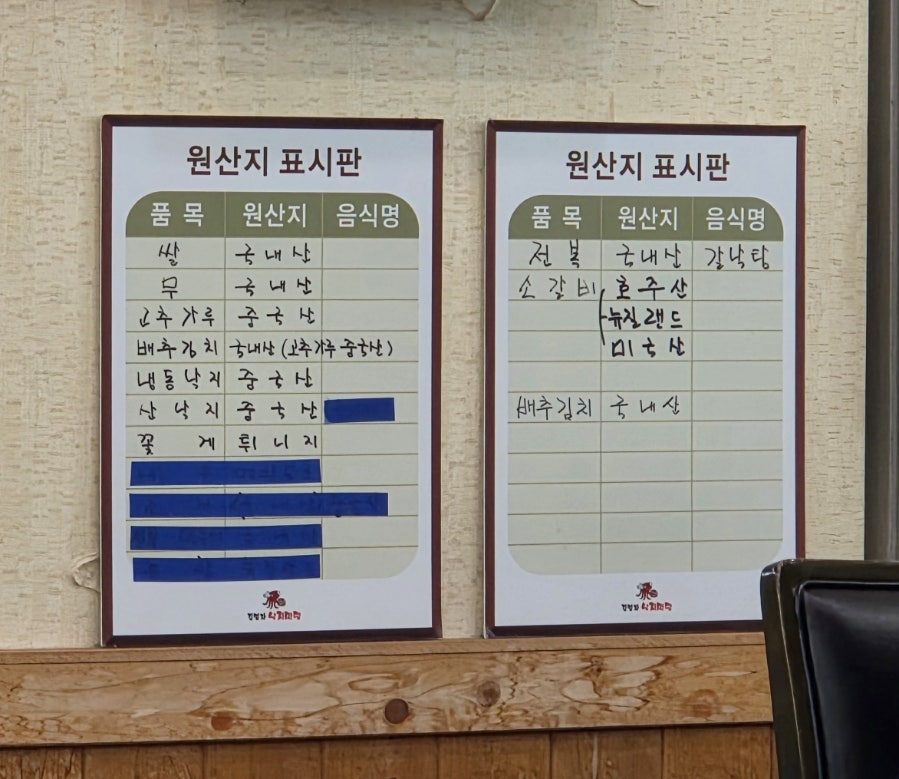 원산지 표시판
품 목 원산지 음식명
쌀 국내산
무 국내산
고추가루 중국산
배추김치 국내산(고추가루 중국산)
냉동낙지 중국산
산낙지 중국산
꽃 게 튀니지
원산지 표시판
품 목 원산지 음식명
전복 국내산 갈낙탕
소갈비 호주산
뉴질랜드
미국산
배추김치 국내산